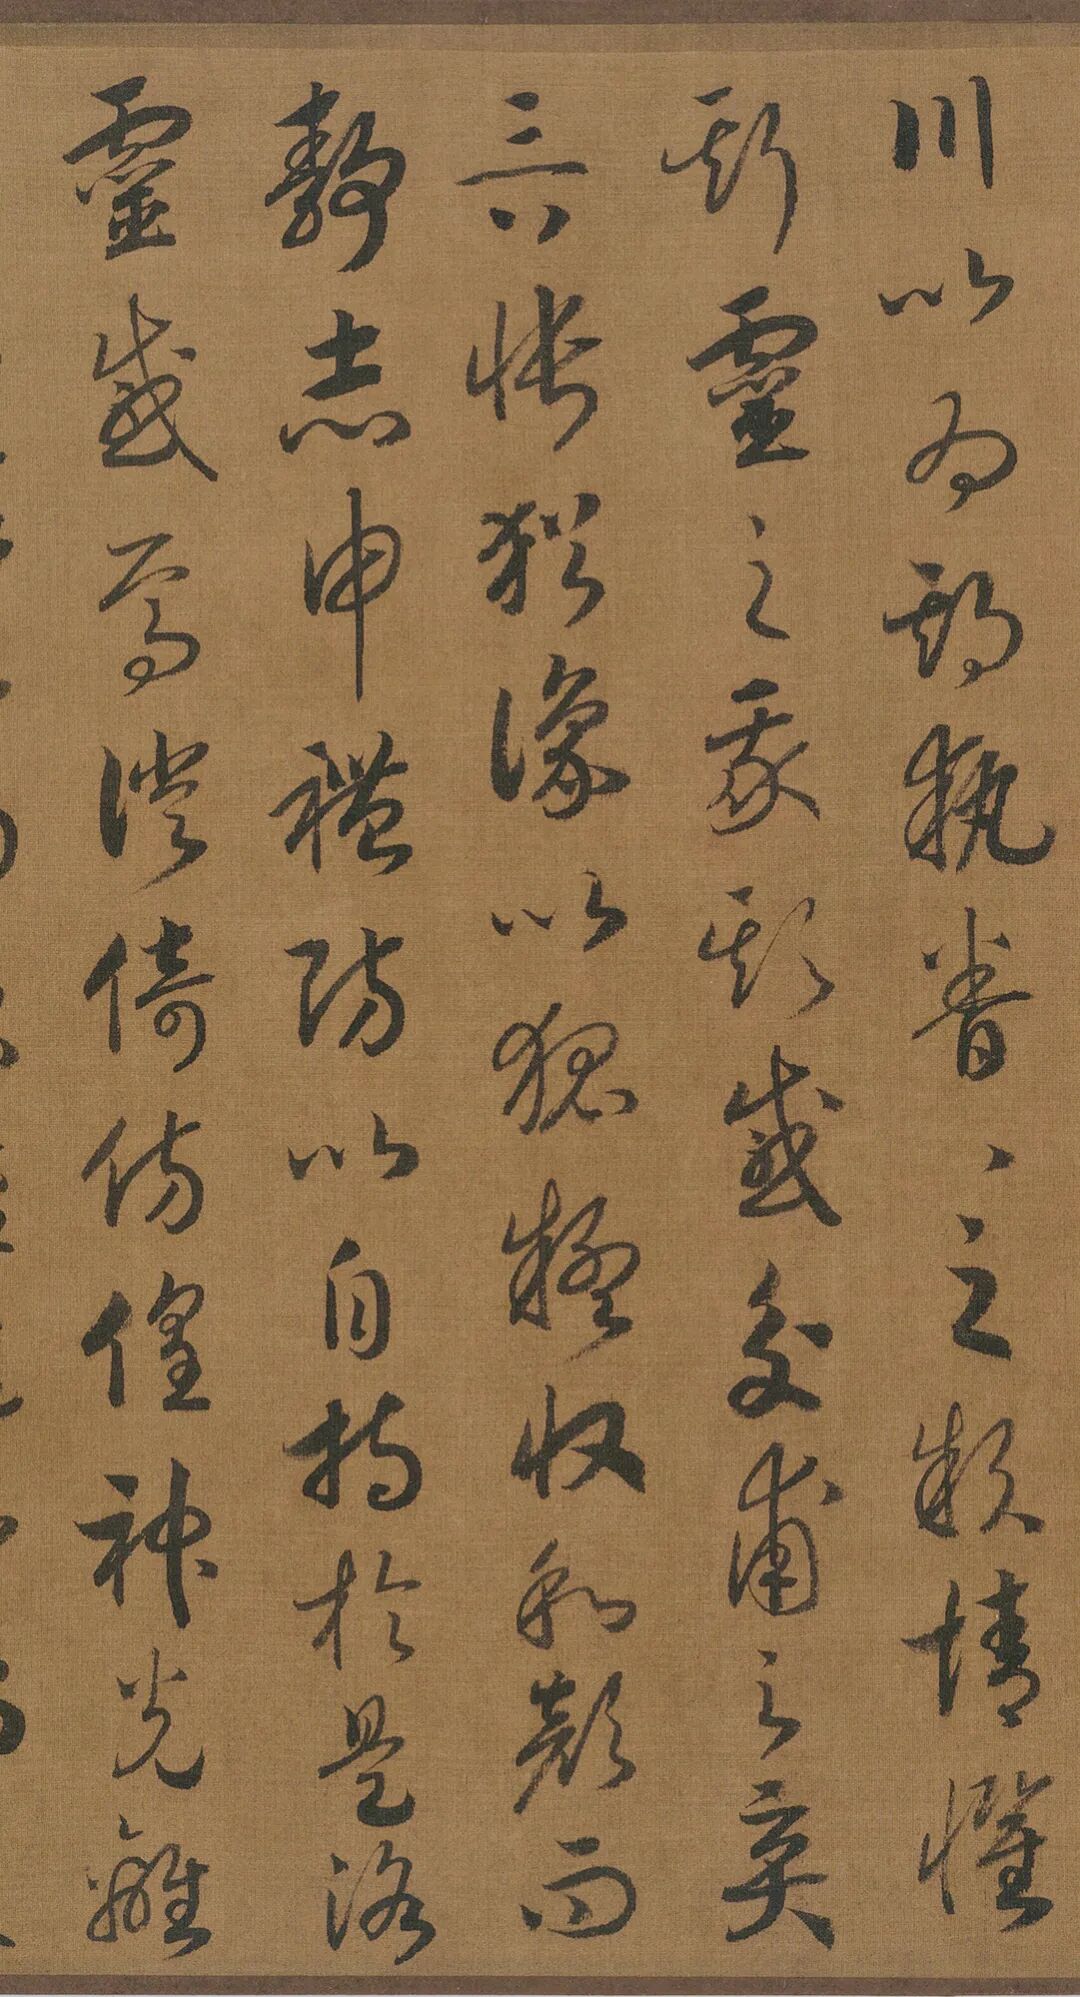 川以為期執眷々之款情懼
斯靈之我欺感交甫之棄
言兮悵猶豫以狐疑收和顏而
靜志申禮防以自持於是洛
靈感焉徙倚彷徨神光離